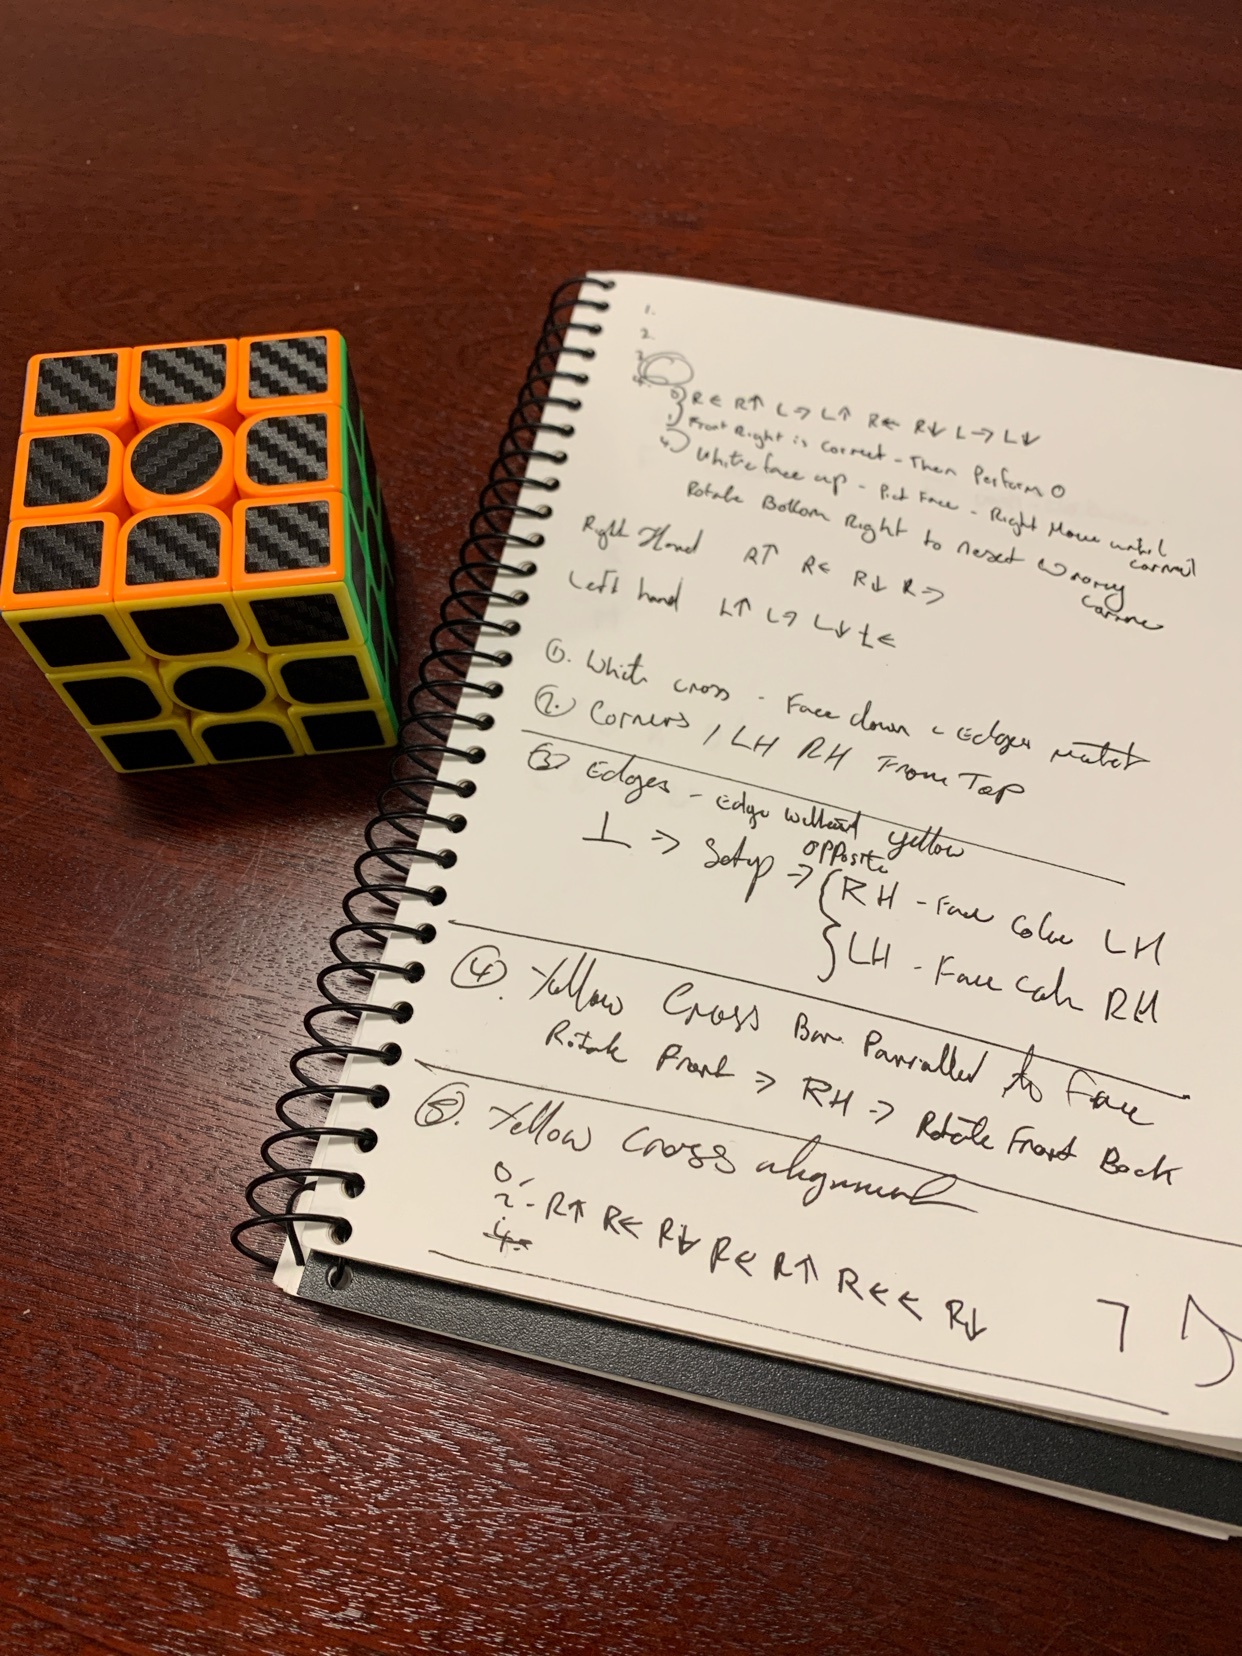 1.
2.
3.
4.
0) R← R↑ L→ L↑ R← R↓ L→ L↓
1) Front Right is correct - Then Perform 0
White face up - Pick Face - Right Move until
correct
Rotate Bottom Right to reset wrong
Right Hand R↑ R← R↓ R→
Left hand L↑ L→ L↓ L←
①. White cross - Face down - Edges match
②. Corners / LH RH From Top
③ Edges - Edge without yellow
⊥ ⇒ Setup opposite ⇒ { RH - Face Color LH
{ LH - Face Color RH
④. Yellow Cross Bar Parralled to Face
Rotate Front ⇒ RH ⇒ Rotate Front Back
⑤. Yellow Cross alignment
0:
2:- R↑ R← R↓ R← R↑ R←← R↓
4: